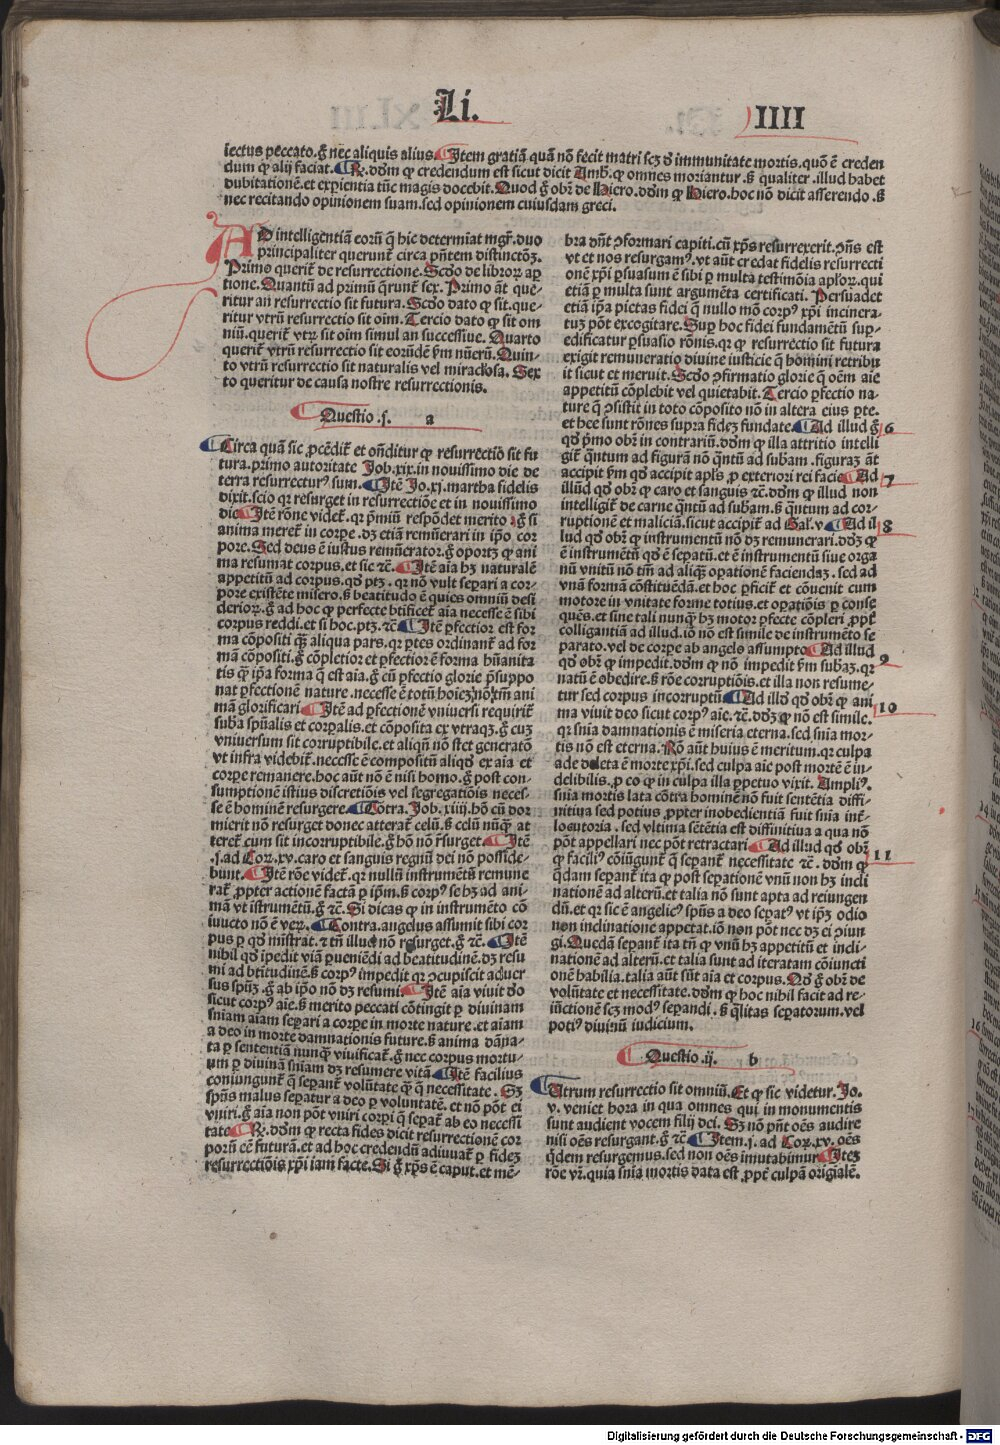 Li. IIII
iectus peccato. g̃ nec aliquis alius. Itẽ gratiã quã nõ fecit matri scꝫ ď immunitate mortis. quõ ẽ creden
dum ꝙ alij faciat. R̃. dõm ꝙ credendum est sicut dicit Amb. ꝙ omnes moriantur. sꝫ qualiter. illud habet
dubitationẽ. et exꝑientia tũc magis docebit. Quod g̃ obꝛ̃ de Hiero. dõm ꝙ Hiero. hoc nõ dicit asserendo. sꝫ
nec recitando opinionem suam. sed opinionem cuiusdam greci.
AD intelligentiã eorũ q̃ hic determĩat mgr̃. duo
principaliter querunt̃ circa pñtem distinctõꝫ.
Primo querit̃ de resurrectione. Scďo de libroꝝ aꝑ
tione. Quantũ ad primũ q̃runt̃ sex. Primo añt que
ritur an resurrectio sit futura. Scďo dato ꝙ sit. que-
ritur vtrũ resurrectio sit oĩm. Tercio dato ꝙ sit om
niũ. querit̃ vtꝝ sit oĩm simul an successiue. Quarto
querit̃ vtrũ resurrectio sit eorũdẽ ꝟm nũerũ. Quin-
to vtrũ resurrectio sit naturalis vel miraclosa. Sex
to queritur de causa nostre resurrectionis.
Questio .j. a
Circa quã sic ꝓcẽdit̃ et oñditur ꝙ resurrectiõ sit fu
tura. primo autoritate Job. xix. in nouissimo die de
terra resurrectur⁹ sum. Itẽ Jo. xj. martha fidelis
dixit. scio qꝛ resurget in resurrectiõe et in nouissimo
die. Itẽ rõne videt̃. qꝛ p̃miũ respõdet merito. g̃ si
anima meret̃ in corꝑe. dꝫ etiã remũerari in ip̃o cor
pore. Sed deus ẽ iustus remũerator. g̃ oportꝫ ꝙ ani
ma resumat corpus. et sic ⁊c̃. Itẽ aĩa hꝫ naturalẽ
appetitũ ad corpus. qď ptꝫ. qꝛ nõ vult seꝑari a cor-
pore existẽte misero. sꝫ beatitudo ẽ quies omniũ desi
derioꝝ. g̃ ad hoc ꝙ perfecte btificet̃ aĩa necesse ẽ sibi
corpus reddi. et si hoc. ptꝫ. ⁊c̃ Itẽ ꝑfectior est for
ma cõpositi qꝫ̃ aliqua pars. qꝛ ꝑtes ordinant̃ ad for
mã cõpositi. g̃ cõpletior et ꝑfectior ẽ forma hũanita
tis q̃ ip̃a forma q̃ est aĩa. g̃ cũ ꝑfectio glorie p̃suppo
nat ꝑfectionẽ nature. necesse ẽ totũ hoiẽꝫ nõ tm̃ ani
mã glorificari Itẽ ad ꝑfectionẽ vniuersi requirit̃
suba spũalis et corꝑalis. et cõposita ex vtraqꝫ. g̃ cuꝫ
vniuersum sit corruptibile. et aliqñ nõ stet generatõ
vt infra videbit̃. necesse ẽ compositũ aliqď ex aĩa et
corꝑe remanere. hoc aũt nõ ẽ nisi homo. g̃ post con-
sumptionẽ istius discretiõis vel segregatiõis neces-
se ẽ hominẽ resurgere. Cõtra. Job. xiiij. hõ cũ dor
mierit nõ resurget donec atterat̃ celũ. sꝫ celũ nũqꝫ̃ at
teret̃ cum sit incorruptibile. g̃ hõ nõ r̃surget Itẽ
.j. ad Coꝝ. xv. caro et sanguis regnũ dei nõ posside-
bunt. Itẽ rõe videt̃. qꝛ nullũ instrumẽtũ remune
rat̃ ꝓpter actionẽ factã ꝑ ip̃m. sꝫ corp⁹ se hꝫ ad ani-
mã vt ĩstrumẽtũ. g̃ ⁊c̃. Si dicas ꝙ in instrumẽto cõ
iuncto nõ ẽ veꝝ. Contra. angelus assumit sibi cor
pus ꝑ qď mĩstrat. ⁊ tñ illud nõ resurget. g̃ ⁊c̃. Itẽ
nihil qď ĩpedit viã ꝑueniẽdi ad beatitudinẽ. dꝫ resu
mi ad btitudinẽ. sꝫ corp⁹ impedit qꝛ ↄcupiscit aduer
sus spũꝫ. g̃ ab ip̃o nõ dꝫ resumi. Itẽ aĩa viuit ďo
sicut corp⁹ aĩe. sꝫ merito peccati cõtingit ꝑ diuinam
sniam aĩam seꝑari a corꝑe in morte nature. et aĩam
a deo in morte damnationis future. sꝫ anima dãna-
ta ꝑ sententiã nunqꝫ̃ viuificat̃. g̃ nec corpus mortu-
um ꝑ diuinã sniam dꝫ resumere vitã. Itẽ facilius
coniungunt̃ q̃ seꝑant̃ volũtate qꝫ̃ q̃ necessitate. Sꝫ
spũs malus seꝑatur a deo ꝑ voluntatẽ. et nõ põt ei
vniri. g̃ aĩa non põt vniri corꝑi q̃ seꝑat̃ ab eo necessi
tate R̃. dõm ꝙ recta fides dicit resurrectionẽ cor
porũ eẽ futurã. et ad hoc credendũ adiuuat̃ ꝑ fideꝫ
resurrectiõis xp̃i iam facte. Si g̃ xp̃s ẽ caput. et mẽ-
bra dñt ↄformari capiti. cũ xp̃s resurrexerit. ↄñs est
vt et nos resurgam⁹. vt aũt credat fidelis resurrecti
onẽ xp̃i ꝑsuasum ẽ sibi ꝑ multa testimõia apl'oꝝ. qui
etiã ꝑ multa sunt argumẽta certificati. Persuadet
etiã ip̃a pietas fidei q̃ nullo mõ corp⁹ xp̃i incinera-
tuꝫ põt excogitare. Suꝑ hoc fidei fundamẽtũ suꝑ-
edificatur ꝑsuasio rõnis. qꝛ ꝙ resurrectio sit futura
exigit remuneratio diuine iusticie q̃ homini retribu
it sicut et meruit. Scďo ↄfirmatio glorie q̃ oẽm aĩe
appetitũ cõplebit vel quietabit. Tercio ꝑfectio na-
ture q̃ ↄsistit in toto cõposito nõ in altera eius ꝑte.
et hec sunt rõnes supra fideꝫ fundate. Ad illud g̃ 6
qď p̃mo obꝛ̃ in contrariũ. dõm ꝙ illa attritio intelli
git̃ q̃ntum ad figurã nõ q̃ntũ ad subam. figuraꝫ añt
accipit ꝟm qď accipit apl's ꝓ exteriori rei facie. Ad 7
illũd qď obꝛ̃ ꝙ caro et sanguis ⁊c̃. dõm ꝙ illud non
intelligit̃ de carne q̃ntũ ad subam. sꝫ q̃ntum ad cor-
ruptionẽ et maliciã. sicut accipit̃ ad Gal'. v. Ad il 8
lud qď obꝛ̃ ꝙ instrumentũ nõ dꝫ remunerari. dõꝫ ꝙ
ẽ instrumẽtũ qď ẽ seꝑatũ. et ẽ instrumentũ siue orga
nũ vnitũ nõ tm̃ ad aliqꝫ oꝑationẽ faciendaꝫ. sed ad
vnã formã cõstituẽdã. et hoc ꝑficit̃ et cõuenit cum
motore in vnitate forme totius. et oꝑatiõis ꝑ conse
quẽs. et sine tali nunqꝫ̃ hꝫ motor ꝑfecte cõpleri ꝓpt̃
colligantiã ad illud. iõ nõ est simile de instrumẽto se
parato. vel de corꝑe ab angelo assumpto. Ad illud 9
qď obꝛ̃ ꝙ impedit. dõm ꝙ nõ impedit ꝟm subaꝫ. qꝛ
natũ ẽ obedire. sꝫ rõe corruptiõis. et illa non resume-
tur sed corpus incorruptũ. Ad illď qď obꝛ̃ ꝙ ani 10
ma viuit deo sicut corp⁹ aĩe. ⁊c̃. dõꝫ ꝙ nõ est simile.
qꝛ snia damnationis ẽ miseria eterna. sed snia mor-
tis nõ est eterna. Rõ aũt huius ẽ meritum. qꝛ culpa
ade deleta ẽ morte xp̃i. sed culpa aĩe post mortẽ ẽ in-
delibilis. ꝓ eo ꝙ in culpa illa ꝑpetuo vixit. Ampli⁹.
snia mortis lata cõtra hominẽ nõ fuit sentẽtia diffi-
nitiua sed potius ꝓpter inobedientiã fuit snia int̃-
locutoria. sed vltima sẽtẽtia est diffinitiua a qua nõ
põt appellari nec põt retractari Ad illud qď obꝛ̃ 11
ꝙ facili⁹ cõiũgunt̃ q̃ seꝑant̃ necessitate ⁊c̃. dõm ꝙ
q̃dam seꝑant̃ ita ꝙ post seꝑationẽ vnũ non hꝫ incli
nationẽ ad alterũ. et talia nõ sunt apta ad reiungen
dũ. et qꝛ sic ẽ angelic⁹ spũs a deo seꝑat⁹ vt ip̃ꝫ odio
non inclinatione appetat. iõ non põt nec dꝫ ei ↄiun
gi. Quedã seꝑant̃ ita tñ ꝙ vnũ hꝫ appetitũ et incli-
nationẽ ad alterũ. et talia sunt ad iteratam cõiuncti
onẽ habilia. talia aũt sũt aĩa et corpus. Qď g̃ obꝛ̃ de
volũtate et necessitate. dõm ꝙ hoc nihil facit ad re-
iũctionẽ scꝫ mod⁹ seꝑandi. sꝫ q̃litas seꝑatorum. vel
poti⁹ diuinũ iudicium.
Questio .ij. b
Utrum resurrectio sit omniũ. Et ꝙ sic videtur. Jo.
v. veniet hora in qua omnes qui in monumentis
sunt audient vocem filij dei. Sꝫ nõ pñt oẽs audire
nisi oẽs resurgant. g̃ ⁊c̃ Item. j. ad Coꝝ. xv. oẽs
q̃dem resurgemus. sed non oẽs immutabimur Iteꝫ
rõe vꝛ̃. quia snia mortis data est ꝓpt̃ culpã origĩalẽ.
Digitalisierung gefördert durch die Deutsche Forschungsgemeinschaft - DFG